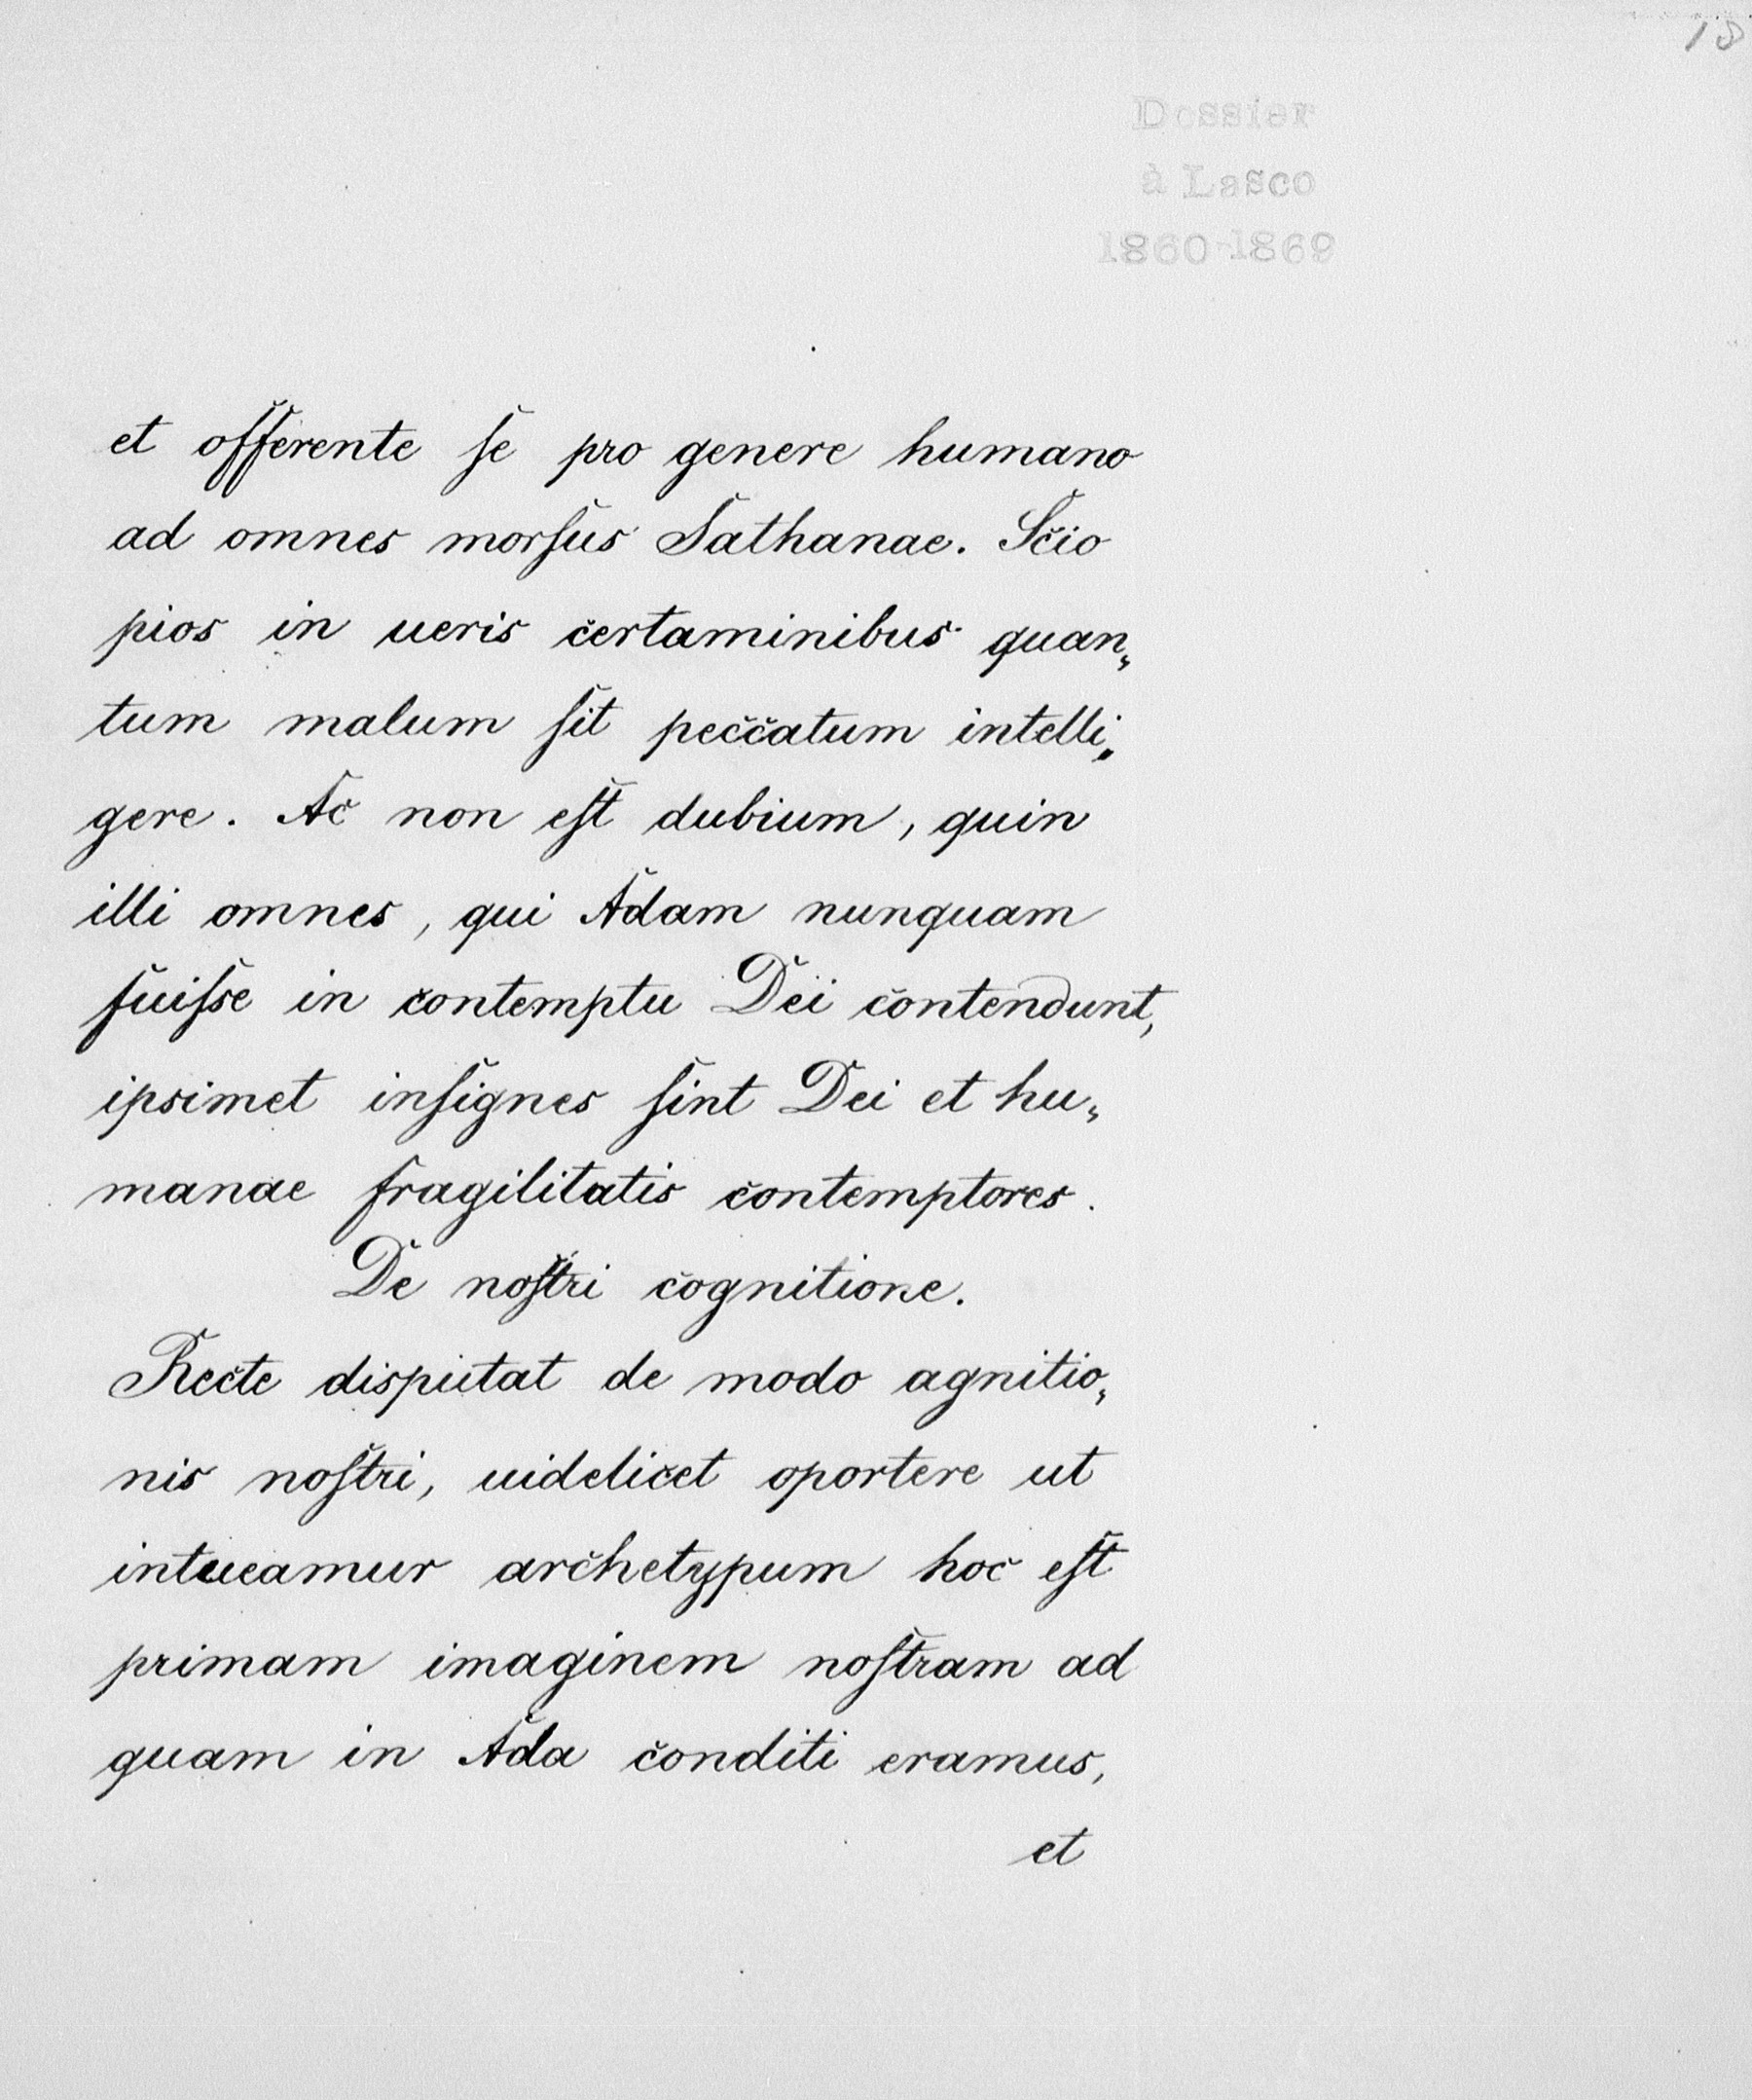 18
Dossier
à Lasco
1860-1869
et offerente ſe pro genere humano
ad omnes morſus Sathanae. Scio
pios in ueris certaminibus quan„
tum malum ſit peccatum intelli„
gere. Ac non eſt dubium, quin
illi omnes, qui Adam nunquam
fuiſse in contemptu Dei contendunt,
ipsimet inſignes ſint Dei et hu„
manae fragilitatis contemptores.
De noſtri cognitione.
Recte disputat de modo agnitio„
nis noſtri, uidelicet oportere ut
intueamur archetypum hoc eſt
primam imaginem noſtram ad
quam in Ada conditi eramus,
et